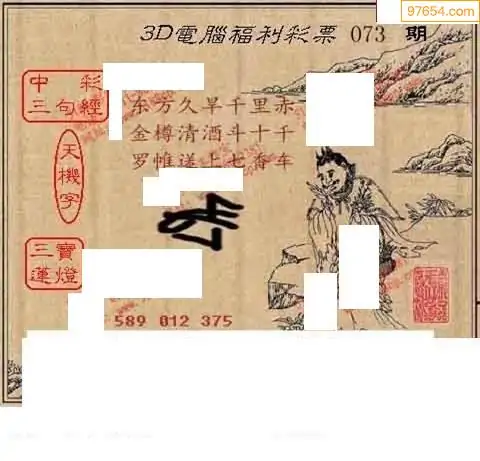 97654.com
3D電腦福利彩票 073 期
中彩
三句經
东方久旱千里赤
金樽清酒斗十千
罗帷送上七香车
天機字
三寶
蓮燈
589 012 375